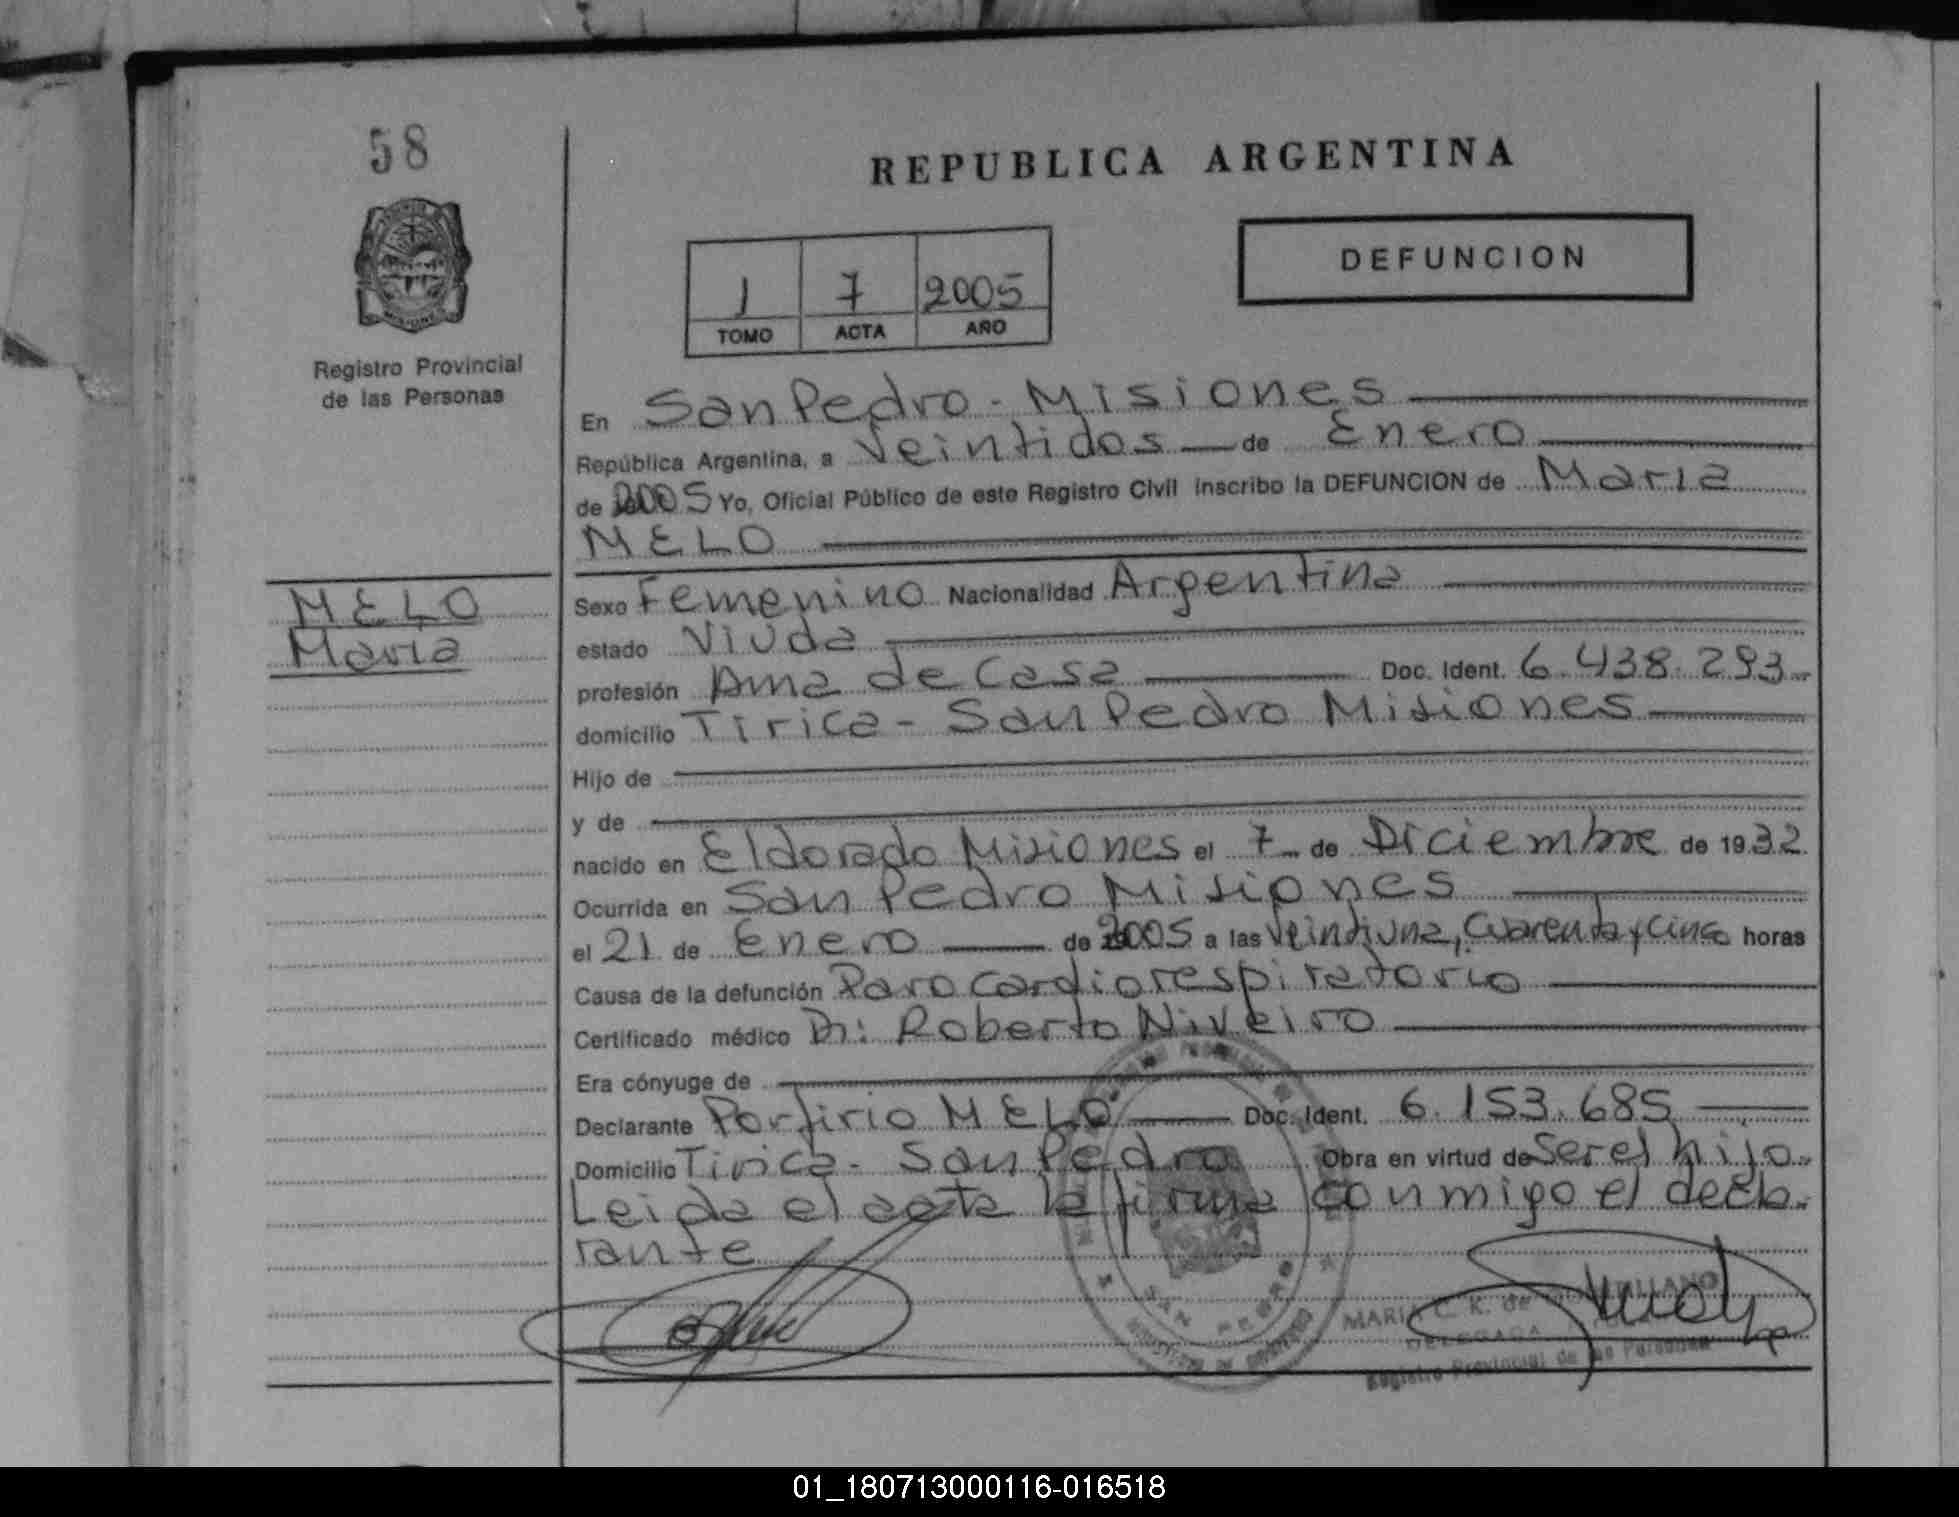 58
REPUBLICA ARGENTINA
DEFUNCION
1 7 2005
TOMO ACTA AÑO
Registro Provincial
de las Personas
En San Pedro - Misiones
República Argentina, a Veintidos de Enero
de 2005 Yo, Oficial Público de este Registro Civil inscribo la DEFUNCION de Maria
MELO
MELO
Maria
Sexo Femenino Nacionalidad Argentina
estado Viuda
profesión Ama de Casa Doc. Ident. 6.438.293
domicilio Tirica - San Pedro Misiones
Hijo de
y de
nacido en Eldorado Misiones el 7 de Diciembre de 1932
Ocurrida en San Pedro Misiones
el 21 de Enero de 2005 a las Veintiuna, Cuarenta y Cinco horas
Causa de la defunción Paro cardiorespiratorio
Certificado médico Dr: Roberto Niveiro
Era cónyuge de
Declarante Porfirio MELO Doc. Ident. 6.153.685
Domicilio Tirica - San Pedro Obra en virtud de Ser el hijo.
Leida el acta la firma conmigo el decla-
rante
SAN PEDRO
MARIA C. K. de
DELEGADA
Registro Provincial de las Personas
01_180713000116-016518